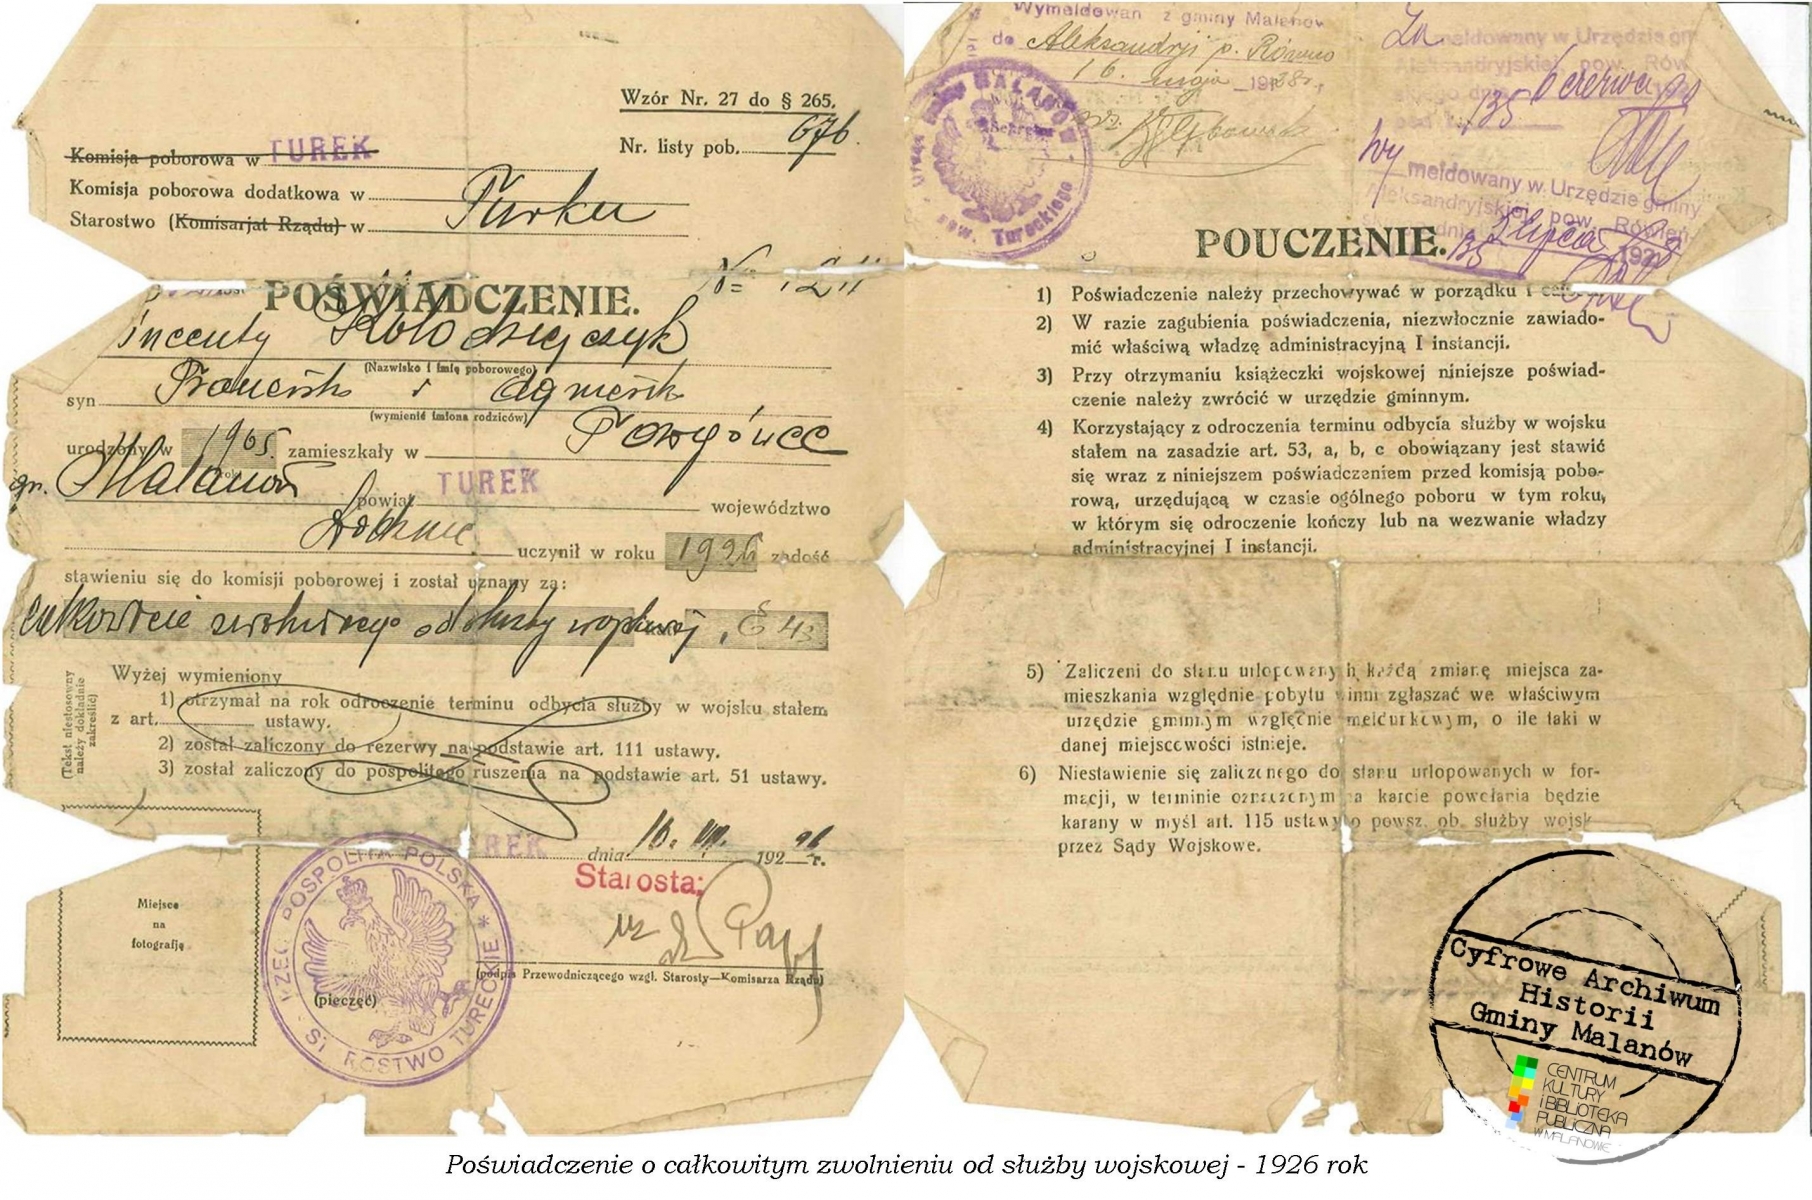 Wzór Nr. 27 do § 265.
Nr. listy pob. 676.
Komisja poborowa w TUREK
Komisja poborowa dodatkowa w
Starostwo (Komisarjat Rządu) w Turku
POŚWIADCZENIE.
№ 1211
incenty Kołodziejczyk
(Nazwisko i imię poborowego)
syn Franciszk i Agnieszk
(wymienić imiona rodziców)
urodzony w 1905. zamieszkały w
roku
gm. Malanów powiat TUREK województwo
Łódzkie uczynił w roku 1926 zadość
stawieniu się do komisji poborowej i został uznany za:
całkowicie zwolnionego od służby wojskowej, E 43
Wyżej wymieniony
(Tekst niestosowny należy dokładnie zakreślić)
1) otrzymał na rok odroczenie terminu odbycia służby w wojsku stałem
z art. ustawy.
2) został zaliczony do rezerwy na podstawie art. 111 ustawy.
3) został zaliczony do pospolitego ruszenia na podstawie art. 51 ustawy.
dnia 16. VII. 1926 r.
Starosta:
wz
(podpis Przewodniczącego wzgl. Starosty—Komisarza Rządu)
Miejsce
na
fotografję
(pieczęć)
RZEC POSPOLITA POLSKA * ST ROSTWO TURECKIE
Wymeldowan z gminy Malanów
do Aleksandrji p. Równo
16. maja 1938 r.
Sekretarz
MALANÓW
pow. Tureckiego
Za meldowany w Urzędzie gm
Aleksandryjskiej, pow. Rów
6 czerwca
135
Wy meldowany w Urzędzie gminy
Aleksandryjskiej, pow. Rówień-
lipca 193
135
POUCZENIE.
1) Poświadczenie należy przechowywać w porządku i
2) W razie zagubienia poświadczenia, niezwłocznie zawiado-
mić właściwą władzę administracyjną I instancji.
3) Przy otrzymaniu książeczki wojskowej niniejsze poświad-
czenie należy zwrócić w urzędzie gminnym.
4) Korzystający z odroczenia terminu odbycia służby w wojsku
stałem na zasadzie art. 53, a, b, c obowiązany jest stawić
się wraz z niniejszem poświadczeniem przed komisją pobo-
rową, urzędującą w czasie ogólnego poboru w tym roku,
w którym się odroczenie kończy lub na wezwanie władzy
administracyjnej I instancji.
5) Zaliczeni do stanu urlopowanych każdą zmianę miejsca za-
mieszkania względnie pobytu winni zgłaszać we właściwym
urzędzie gminnym względnie meldunkowym, o ile taki w
danej miejscowości istnieje.
6) Niestawienie się zaliczonego do stanu urlopowanych w for-
macji, w terminie oznaczonym na karcie powołania będzie
karany w myśl art. 115 ustawy o powsz. ob. służby wojsk
przez Sądy Wojskowe.
Cyfrowe Archiwum
Historii
Gminy Malanów
CENTRUM
KULTURY
i BiBLiOTEKA
PUBLiCZNA
W MALANOWIE
Poświadczenie o całkowitym zwolnieniu od służby wojskowej - 1926 rok